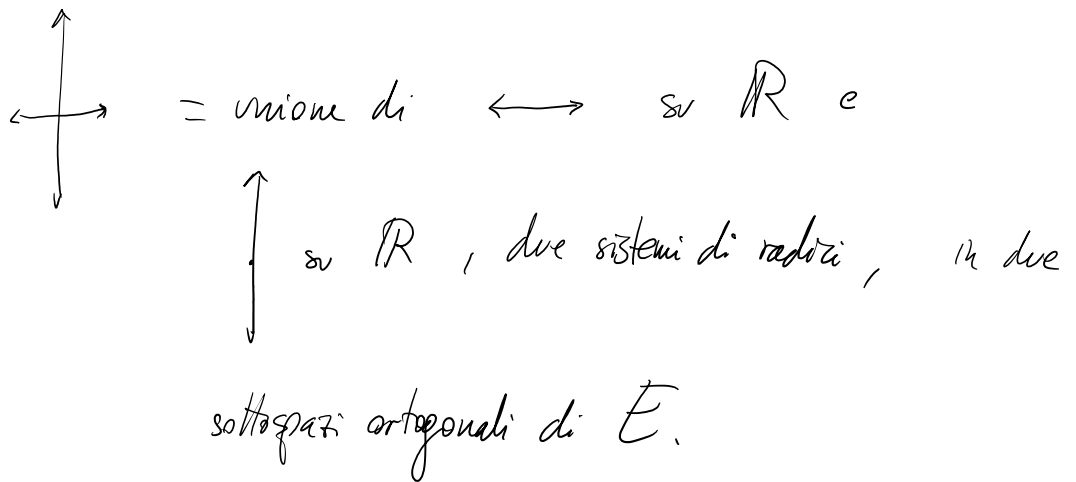 = unione di ↔ su ℝ e
↕ su ℝ, due sistemi di radici, in due
sottospazi ortogonali di E.